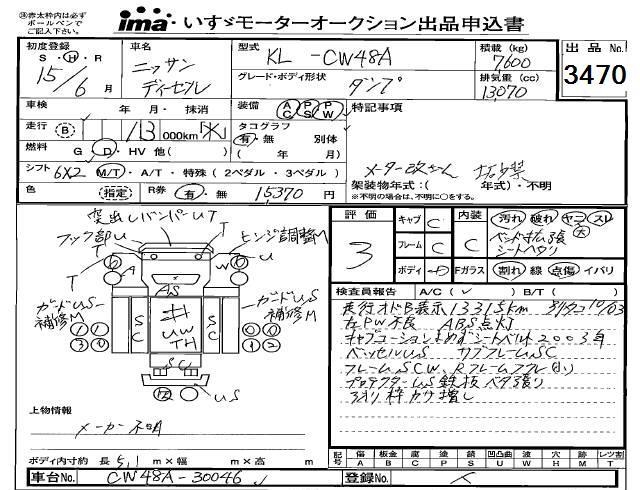 ㊟赤太枠内は必ず
ボールペンで
ご記入下さい。
ima いすゞモーターオークション出品申込書
初度登録
S・H・R
15/6 月
車名
ニッサン
ディーゼル
型式
KL -CW48A
グレード・ボディ形状
ダンプ
積載(kg)
7600
排気量(cc)
13070
出品No.
3470
車検 年・月・抹消
装備 AC PS PW
特記事項
走行 B 13 000km
タコグラフ
有・無 別体
( 年 月)
燃料 G・D・HV 他( )
シフト 6X2 M/T・A/T・特殊(2ペダル・3ペダル)
メーター改ざん
架装物年式:( 年式)・不明
※不明の場合は、不明に○をする。
色 指定 R券 有・無 15,370 円
突出しバンパーUT
フック部U
T
T
ヒンジ調整M
U
A
W
AS
ガードUS
補修M
ガードUS
補修M
SC
SC
井
UW
TH
SC
US
上物情報
メーカー不明
ボディ内寸約 長 5,1 m×幅 m×高 m
評価
3
キャブ C
フレーム C
ボディ
内装 C
Fガラス
汚れ 破れ ヤニ スレ
大
シートヘタリ
割れ 線 点傷 イバリ
検査員報告 A/C( ✓ ) B/T( )
走行オドB表示 13315km
左PW不良 ABS点灯
シートベルト2003年
ベッセルUS サブフレームSC
フレームSCW、Rフレーム
プロテクターUS 鉄板ベタ張り
アオリ枠カサ増し
記号 傷A 板金B 腐C 塗P 錆S 凹凸曲U 波W 穴H 跡M レンズ割T
車台No. CW48A-30046
登録No.